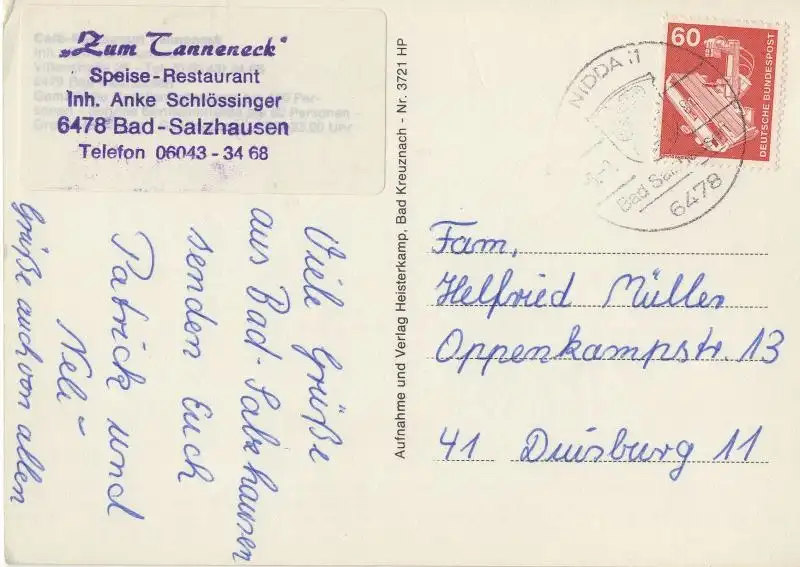 „Zum Tanneneck"
Speise-Restaurant
Inh. Anke Schlössinger
6478 Bad-Salzhausen
Telefon 06043 - 34 68
Viele Grüße
aus Bad-Salzhausen
senden Euch
Patrick und
Neli
Grüße auch von allen
Aufnahme und Verlag Heisterkamp, Bad Kreuznach - Nr. 3721 HP
NIDDA 11
Bad
6478
60
DEUTSCHE BUNDESPOST
Fam.
Helfried Müller
Oppenkampstr. 13
41 Duisburg 11